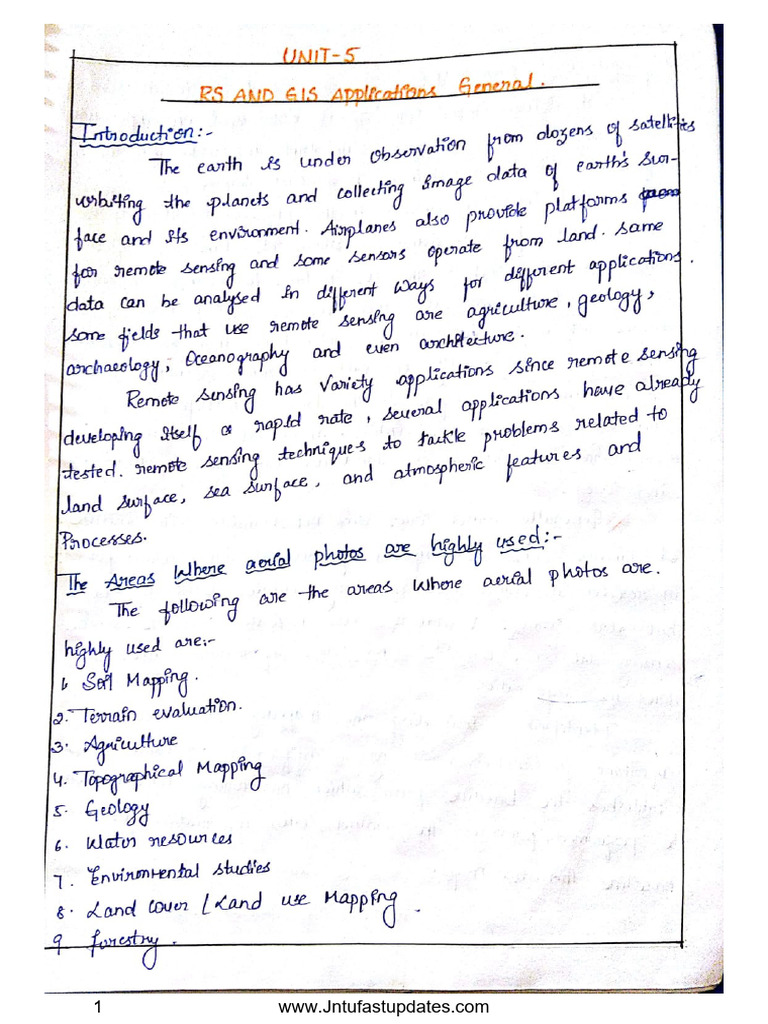 UNIT-5
RS AND GIS Applications General.
Introduction:-
The earth is under observation from dozens of satellities
orbiting the planets and collecting image data of earth's sur-
face and its environment. Airplanes also provide platforms
for remote sensing and some sensors operate from land. same
data can be analysed in different ways for different applications.
some fields that use remote sensing are agriculture, geology,
archaeology, oceanography and even architecture.
Remote sensing has variety applications since remote sensing
developing itself a rapid rate, several applications have already
tested. remote sensing techniques to tackle problems related to
land surface, sea surface, and atmospheric features and
Processes.
The Areas Where aerial photos are highly used:-
The following are the areas where aerial photos are.
highly used are:-
1. Soil Mapping.
2. Terrain evaluation.
3. Agriculture
4. Topographical Mapping
5. Geology
6. Water resources
7. Environmental studies
8. Land cover / Land use Mapping.
9. forestry.
1 www.Jntufastupdates.com